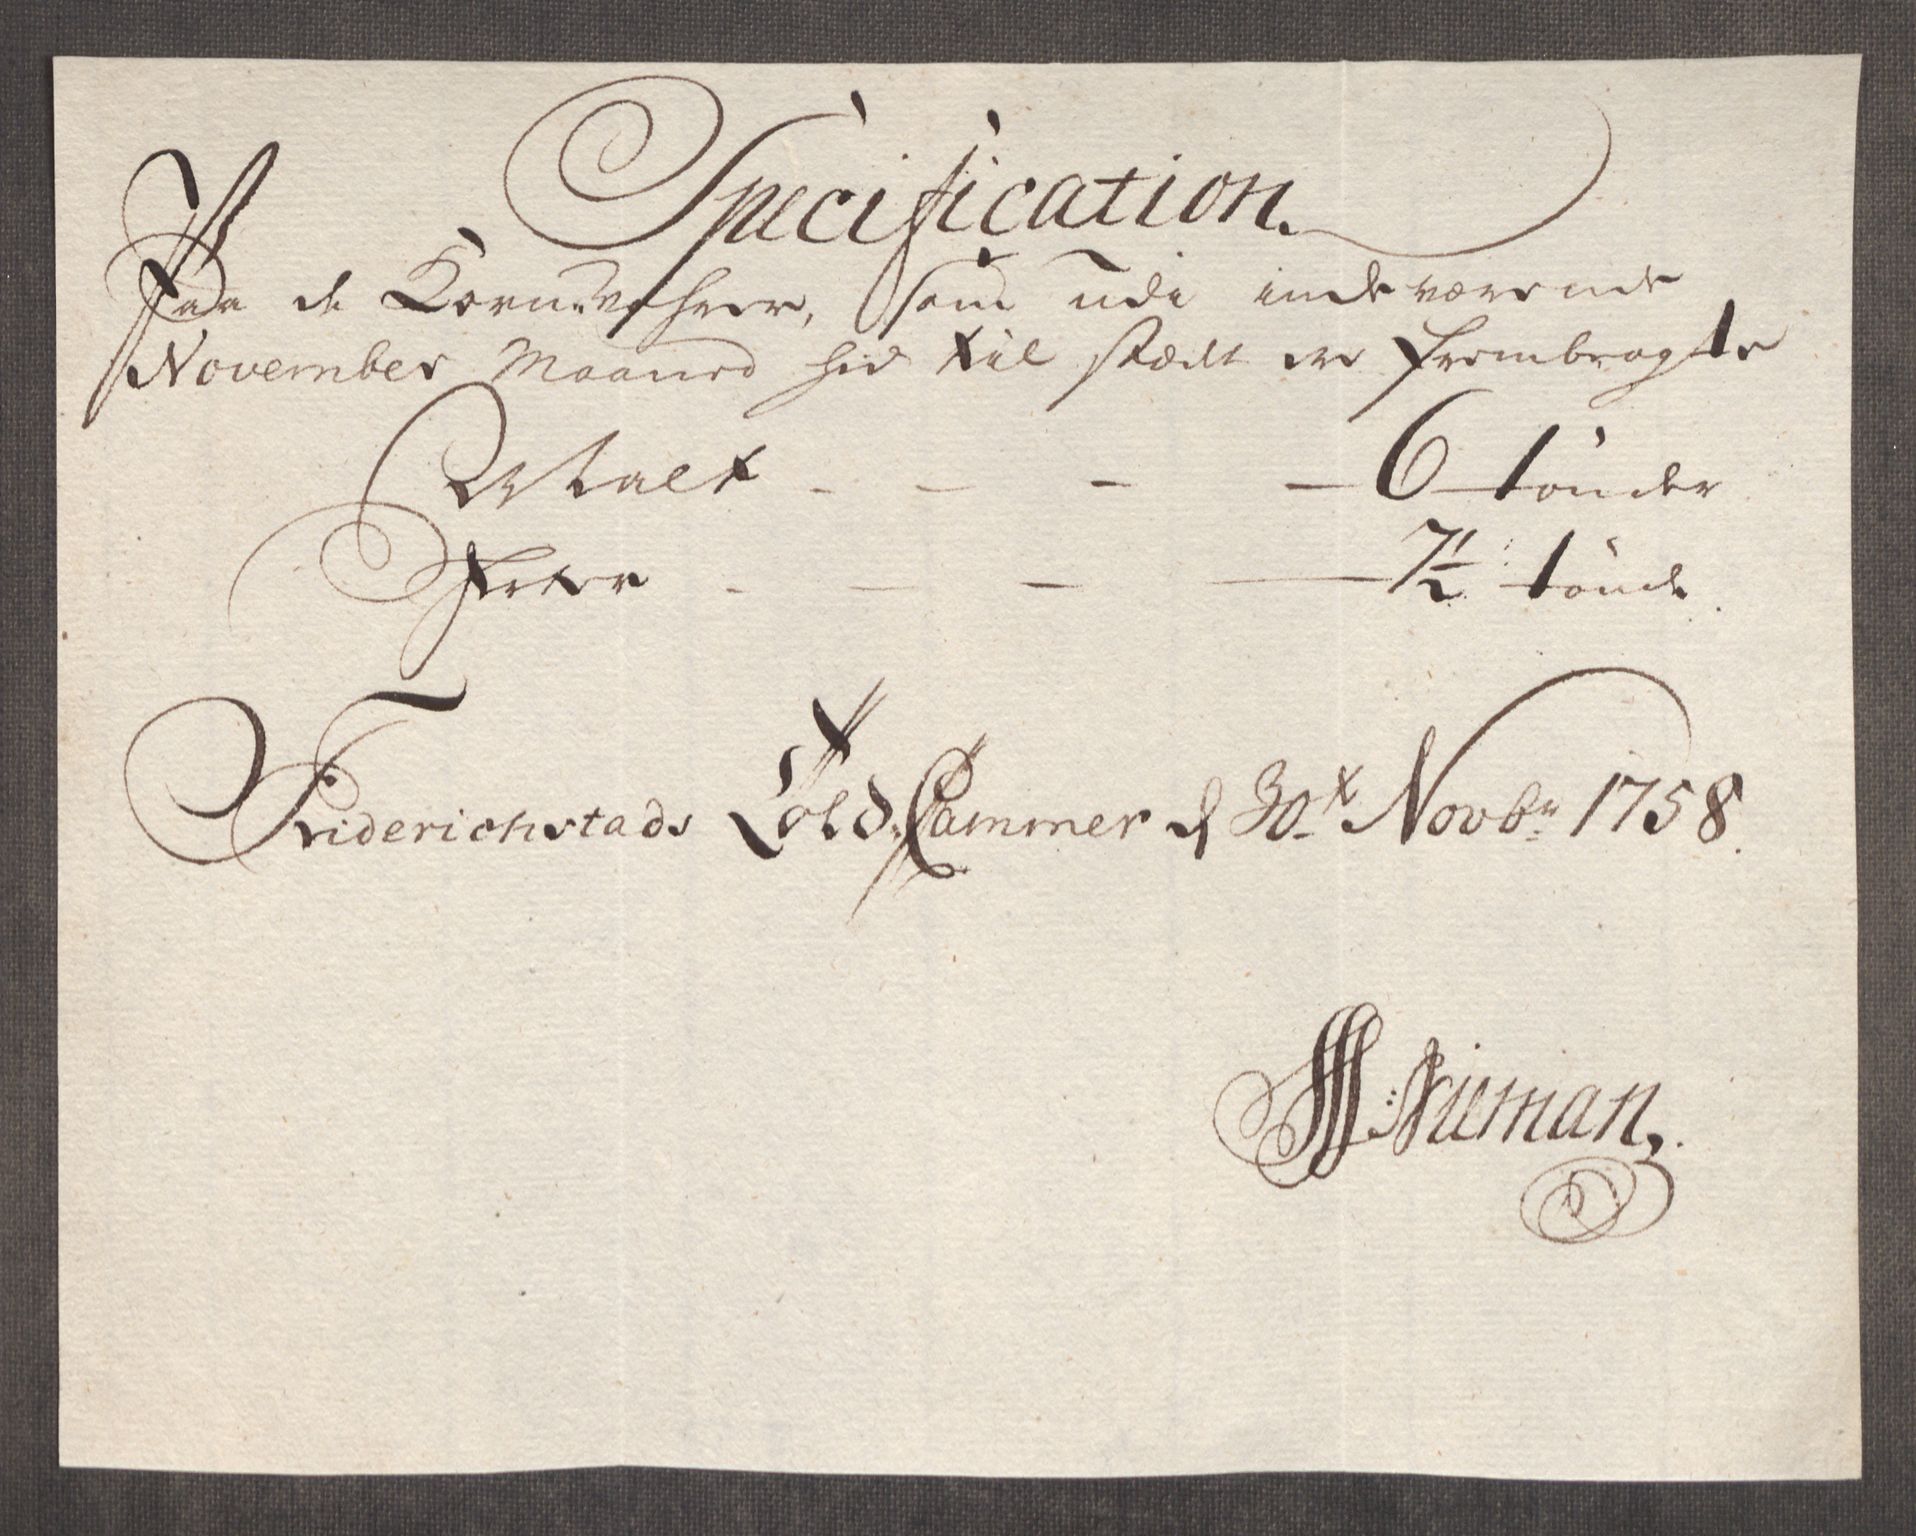 Specification.
Paa de Korn-Vahrer, som udi inde værende
November Maaned hid til stædet ere frembragte
Malt - - - - 6 tønder
Erter - - - - 7½ tønde
Friderichstads Told-Cammer d 30te Novbr 1758.
Nieman